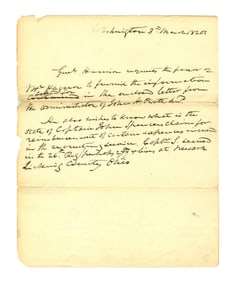 Washington 3d Mar 182
Genl Harrison requests the favor of
to furnish the information
in the enclosed letter from
the administrator of John H.
He also wishes to know what is the
state of Captain John Spencers claim for
reimbursement of certain expences incurred
in the recruiting service. Capt. S. served
in the 26th Regt & lives at Newark
Licking County Ohio